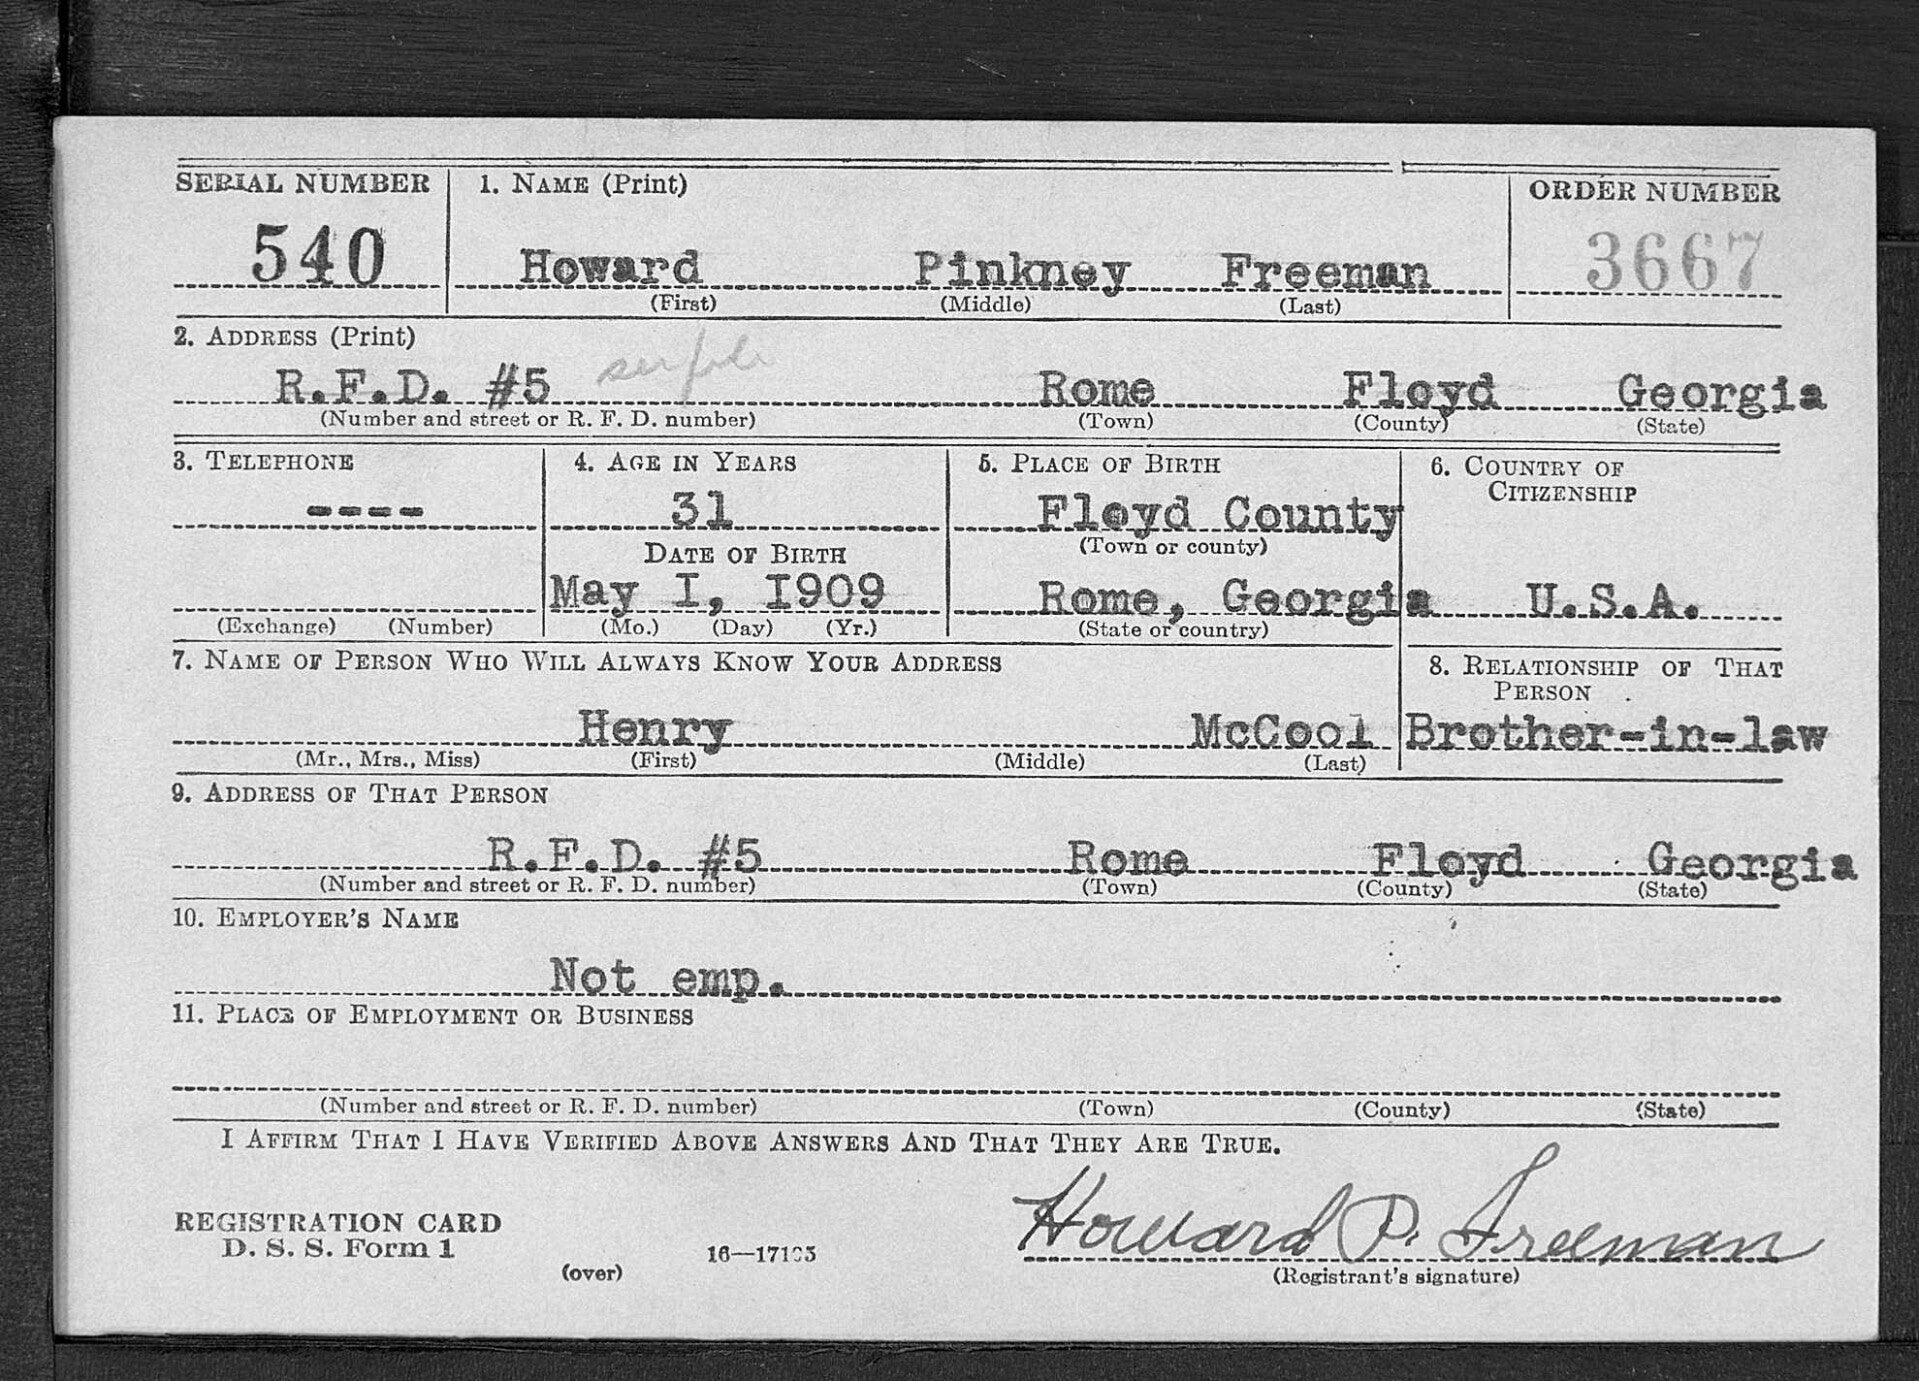 SERIAL NUMBER 1. NAME (Print) ORDER NUMBER
540 Howard Pinkney Freeman 3667
(First) (Middle) (Last)
2. ADDRESS (Print)
R.F.D. #5 Rome Floyd Georgia
(Number and street or R. F. D. number) (Town) (County) (State)
3. TELEPHONE 4. AGE IN YEARS 5. PLACE OF BIRTH 6. COUNTRY OF
CITIZENSHIP
---- 31 Floyd County
DATE OF BIRTH (Town or county)
May 1, 1909 Rome, Georgia U.S.A.
(Exchange) (Number) (Mo.) (Day) (Yr.) (State or country)
7. NAME OF PERSON WHO WILL ALWAYS KNOW YOUR ADDRESS 8. RELATIONSHIP OF THAT
PERSON
Henry McCool Brother-in-law
(Mr., Mrs., Miss) (First) (Middle) (Last)
9. ADDRESS OF THAT PERSON
R.F.D. #5 Rome Floyd Georgia
(Number and street or R. F. D. number) (Town) (County) (State)
10. EMPLOYER'S NAME
Not emp.
11. PLACE OF EMPLOYMENT OR BUSINESS
(Number and street or R. F. D. number) (Town) (County) (State)
I AFFIRM THAT I HAVE VERIFIED ABOVE ANSWERS AND THAT THEY ARE TRUE.
REGISTRATION CARD Howard P. Freeman
D. S. S. Form 1
(over) (Registrant's signature)